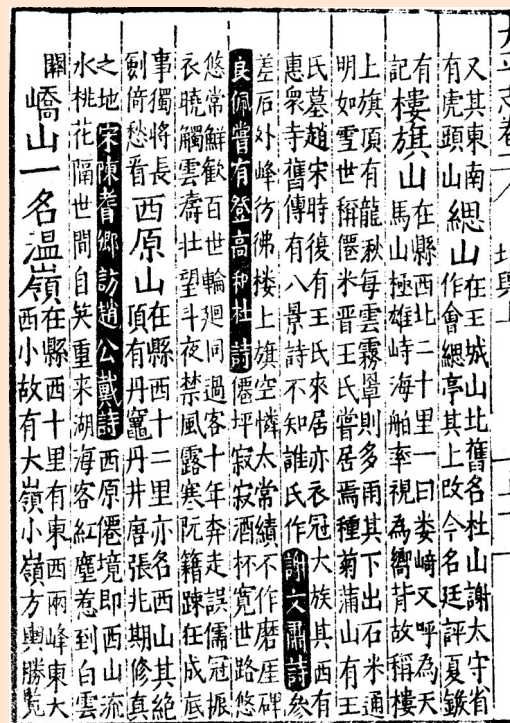 太平志卷二 地輿上
又其東南
有虎頭山
緦山
在王城山北舊名杜山謝太守省
作會緦亭其上改今名廷評夏鍭
有
記
樓旗山
在縣西北二十里一曰婁崎又呼為天
馬山極雄峙海舶率視為嚮背故稱樓
上旗頂有龍湫每雲霧罩則多雨其下出石米通
明如雪世稱僊米晋王氏嘗居焉種菊蒲山有王
氏墓趙宋時復有王氏來居亦衣冠大族其西有
惠衆寺舊傳有八景詩不知誰氏作謝文肅詩參
差后外峰彷彿楼上旗空憐太常績不作磨厓碑
良佩嘗有登高和杜詩僊坪寂寂酒杯寛世路悠
悠常鮮歡百世輪廻同過客十年奔走誤儒冠振
衣曉觸雲濤壮望斗夜禁風露寒阮籍踈狂成底
事獨將長
劍倚愁看
西原山
在縣西十二里亦名西山其絶
頂有丹竈丹井唐張兆期修真
之地宋陳耆卿訪趙公戴詩西原僊境即西山流
水桃花隔世間自笑重来湖海客紅塵惹到白雲
關
嶠山一名温嶺
在縣西十里有東西兩峰東大
西小故有大嶺小嶺方輿勝覧